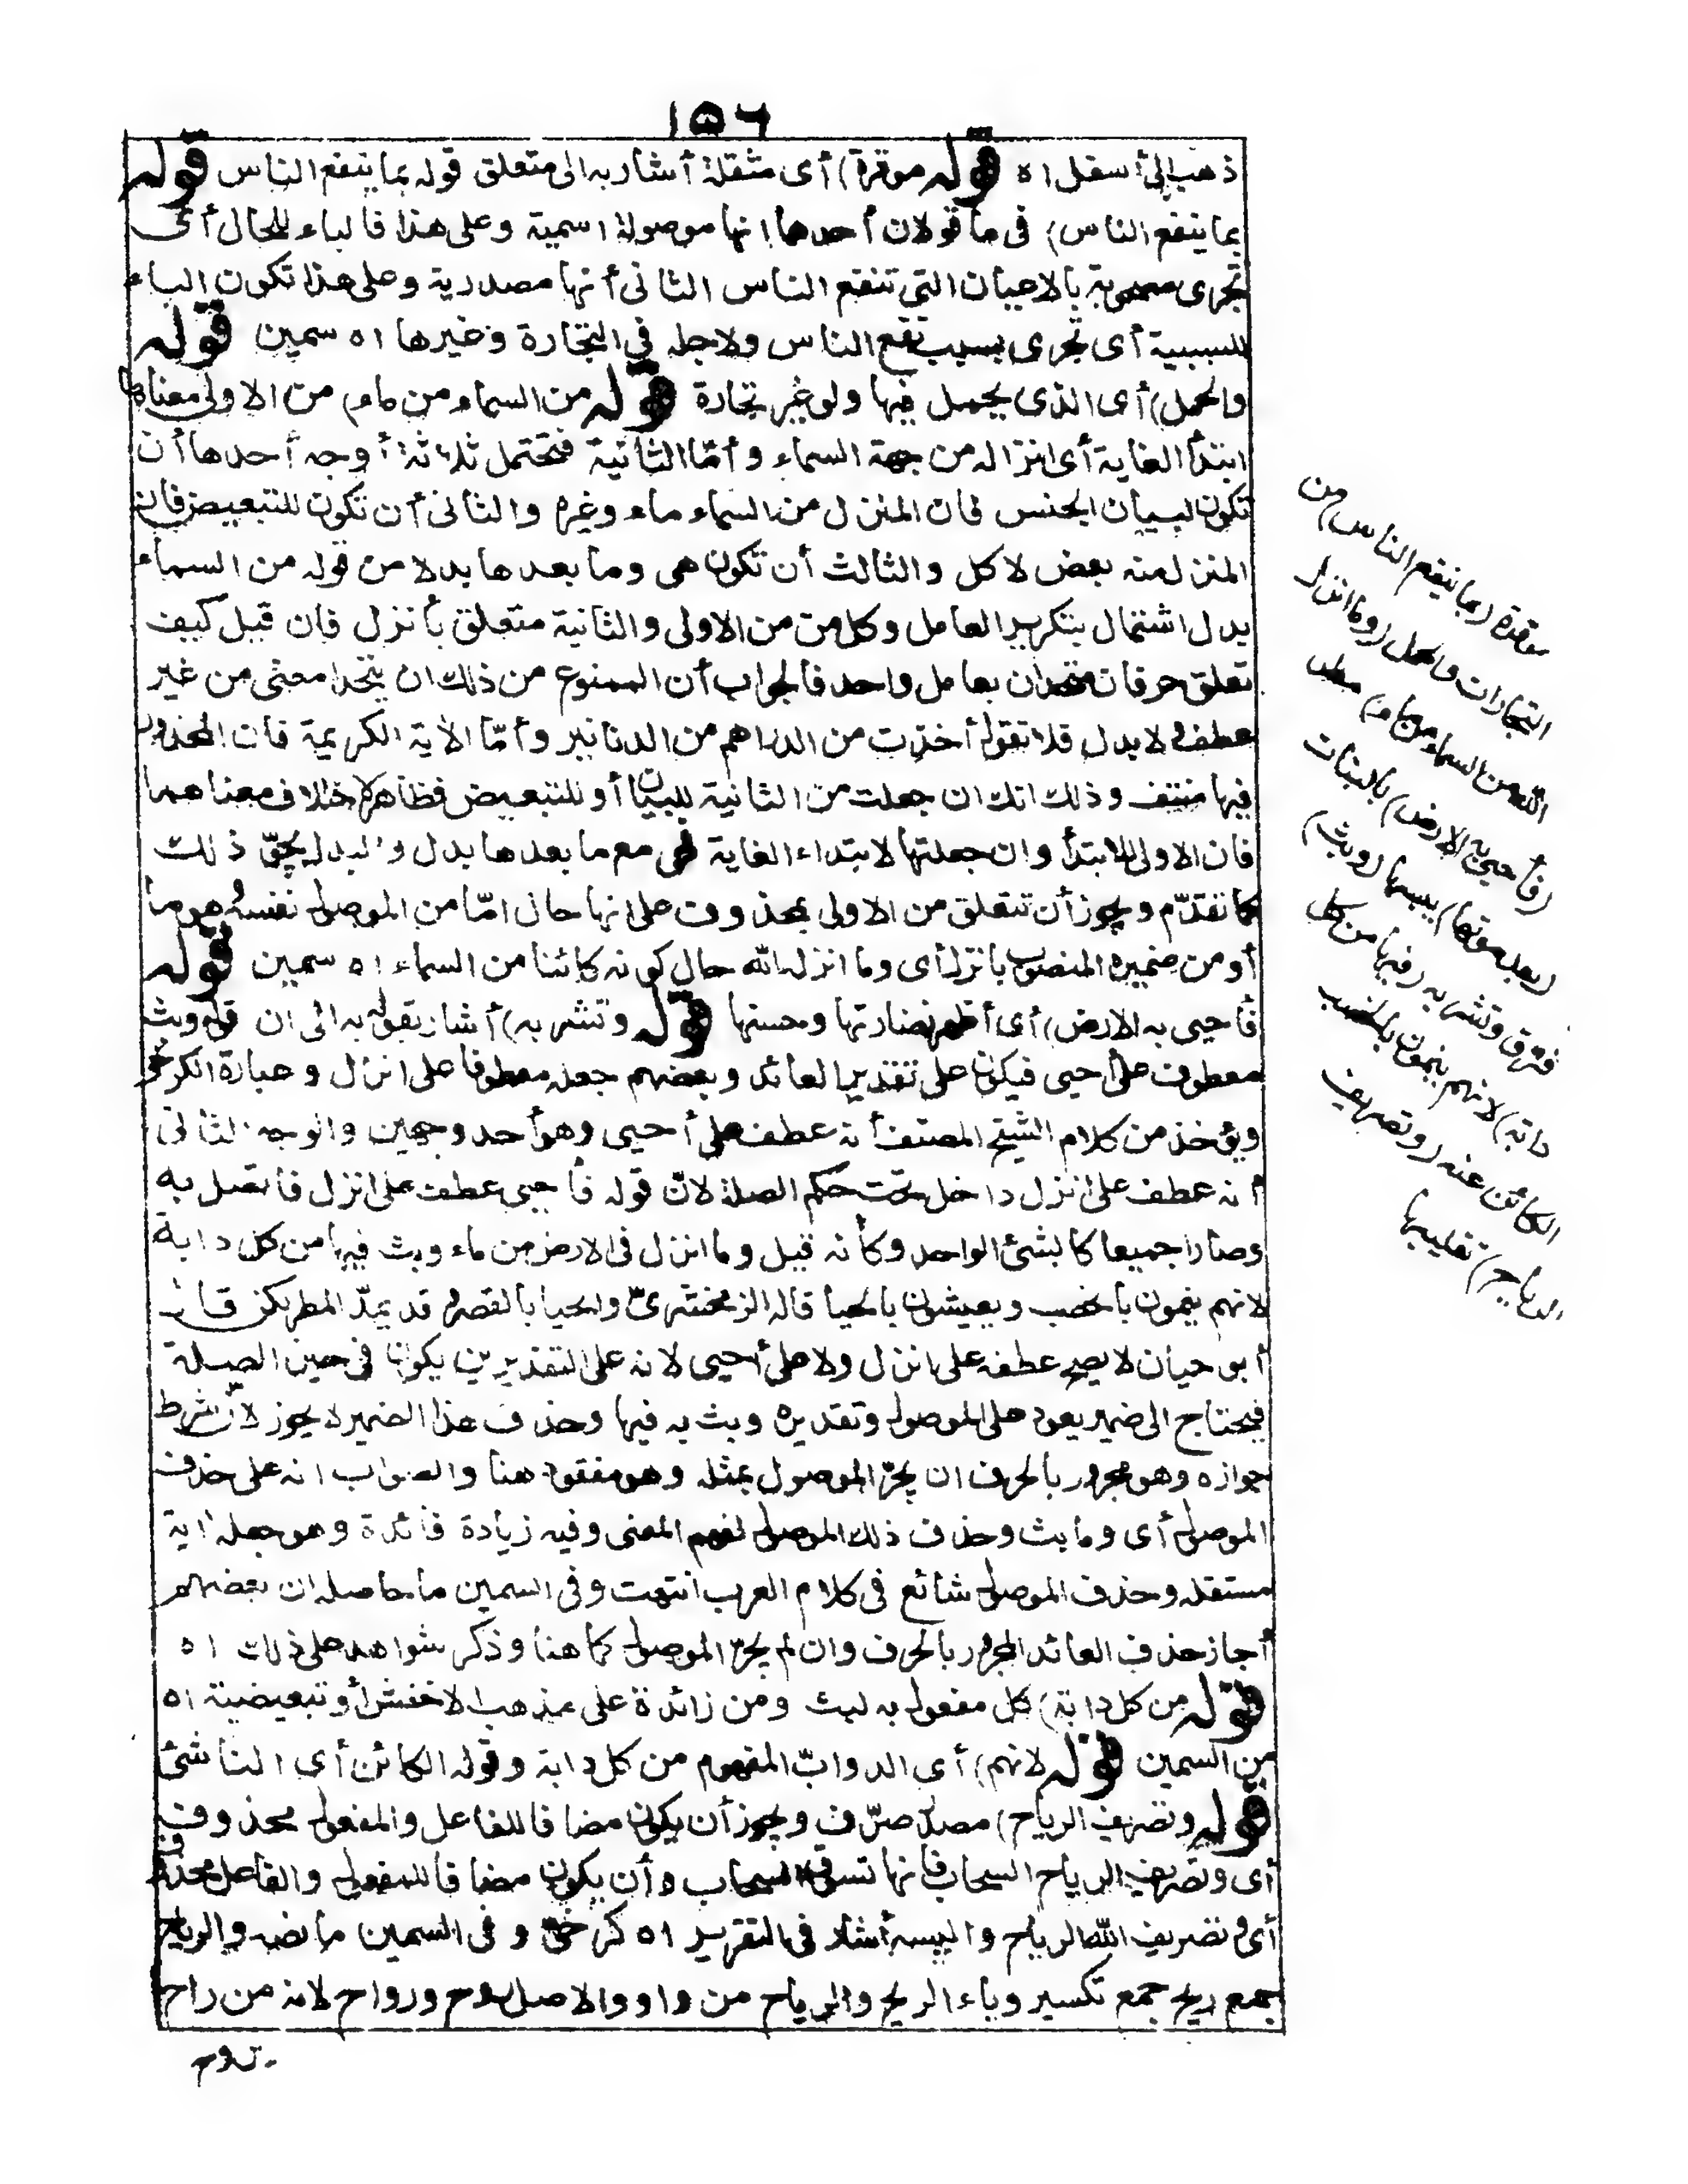 ١٥٦
ذهب الى أسفل اه قوله موقرة) أى مثقلة أشار به الى متعلق قوله بما ينفع الناس قوله
بما ينفع الناس) فى ما قولان أحدها انها موصولة اسمية وعلى هذا فالباء للحال أى
تجرى مصحوبة بالاعيان التى تنفع الناس الثانى أنها مصدرية وعلى هذا تكون الباء
للسببية أى تجرى بسبب نفع الناس ولاجله فى التجارة وغيرها اه سمين قوله
والحمل) أى الذى يحمل فيها ولو غير تجارة قوله من السماء من ماء) من الاولى معناها
ابتدأ الغاية أى انزاله من جهة السماء وأمّا الثانية فتحتمل ثلاثة أوجه أحدها أن
تكون لبيان الجنس فان المنزل من السماء ماء وغيره والثانى أن تكون للتبعيض فان
المنزل منه بعض لا كل والثالث أن تكون هى وما بعدها بدلا من قوله من السماء
بدل اشتمال بتكرير العامل وكل من من الاولى والثانية متعلق بأنزل فان قيل كيف
تعلق حرفان متحدان بعامل واحد فالجواب أن الممنوع من ذلك ان يتحدا معنى من غير
عطف ولا بدل فلا تقول أخذت من الدراهم من الدنانير وأمّا الأية الكريمة فان المحذور
فيها منتف وذلك انك ان جعلت من الثانية للبيان أو للتبعيض فظاهر لاختلاف معناهما
فان الاولى للابتدأ وان جعلتها لابتداء الغاية فهى مع ما بعدها بدل والبدل يجوّز ذلك
كما تقدّم ويجوز أن تتعلق من الاولى بمحذوف على انها حال امّا من الموصول نفسه هو ما
أو من ضميره المنصوب بانزل أى وما انزله الله حال كونه كائنا من السماء اه سمين قوله
فأحيى به الارض) أى أظهر نضارتها وحسنها قوله وتنشر به) أشار بقوله به الى ان قوله وبث
معطوف على أحيى فيكون على تقدير العائد وبعضهم جعله معطوفا على انزل وعبارة الكرخى
ويؤخذ من كلام الشيخ المصنف أنه عطف على أحيى وهو أحد وجهين والوجه الثانى
أنه عطف على انزل داخل تحت حكم الصلة لانّ قوله فأحيى عطف على انزل فاتصل به
وصارا جميعا كالشئ الواحد وكأنه قيل وما انزل فى الارض من ماء وبث فيها من كل دابة
لانهم ينمون بالخصب ويعيشون بالحيا قاله الزمخشرىّ والحيا بالقصر وقد يمدّ المطر لكن قال
أبو حيان لا يصح عطفه على انزل ولا على أحيى لانه على التقديرين يكون فى حيز الصلة
فيحتاج الى ضمير يعود على الموصول وتقديره وبث به فيها وحذف هذا الضمير لا يجوز لانّ شرط
جوازه وهو مجرور بالحرف ان يجرّ الموصول بمثله وهو مفقود هنا والصواب انه على حذف
الموصول أى وما بث وحذف ذلك الموصول لفهم المعنى وفيه زيادة فائدة وهو جعله اية
مستقلة وحذف الموصول شائع فى كلام العرب انتهت وفى السمين ما حاصله ان بعضهم
أجاز حذف العائد المجرور بالحرف وان لم يجرّ الموصول كما هنا وذكر شواهد على ذلك اه
قوله من كل دابة) كل مفعول به لبث ومن زائدة على مذهب الاخفش أو تبعيضية اه
من السمين قوله لانهم) أى الدوابّ المفهوم من كل دابة وقوله الكائن أى الناشئ
قوله وتصريف الرياح) مصدر صرّف ويجوز أن يكون مضافا للفاعل والمفعول محذوف
أى وتصريف الرياح السحاب فانها تسوق السحاب وأن يكون مضافا للمفعول والفاعل محذوف
أى وتصريف الله الرياح واليه أشار فى التقرير اه كرخىّ وفى السمين ما نصه والرياح
جمع ريح جمع تكسير وياء الريح والرياح من واو والاصل روح ورواح لانه من راح
يروح
موقرة (بما ينفع الناس) من
التجارات والحمل (وما انزل
الله من السماء من ماء) مطر
(فأحيى به الارض) بالنبات
(بعد موتها) يبسها (وبث)
فرق ونشر به (فيها من كل
دابة) لانهم ينمون بالخصب
الكائن عنه (وتصريف
الرياح) تقليبها